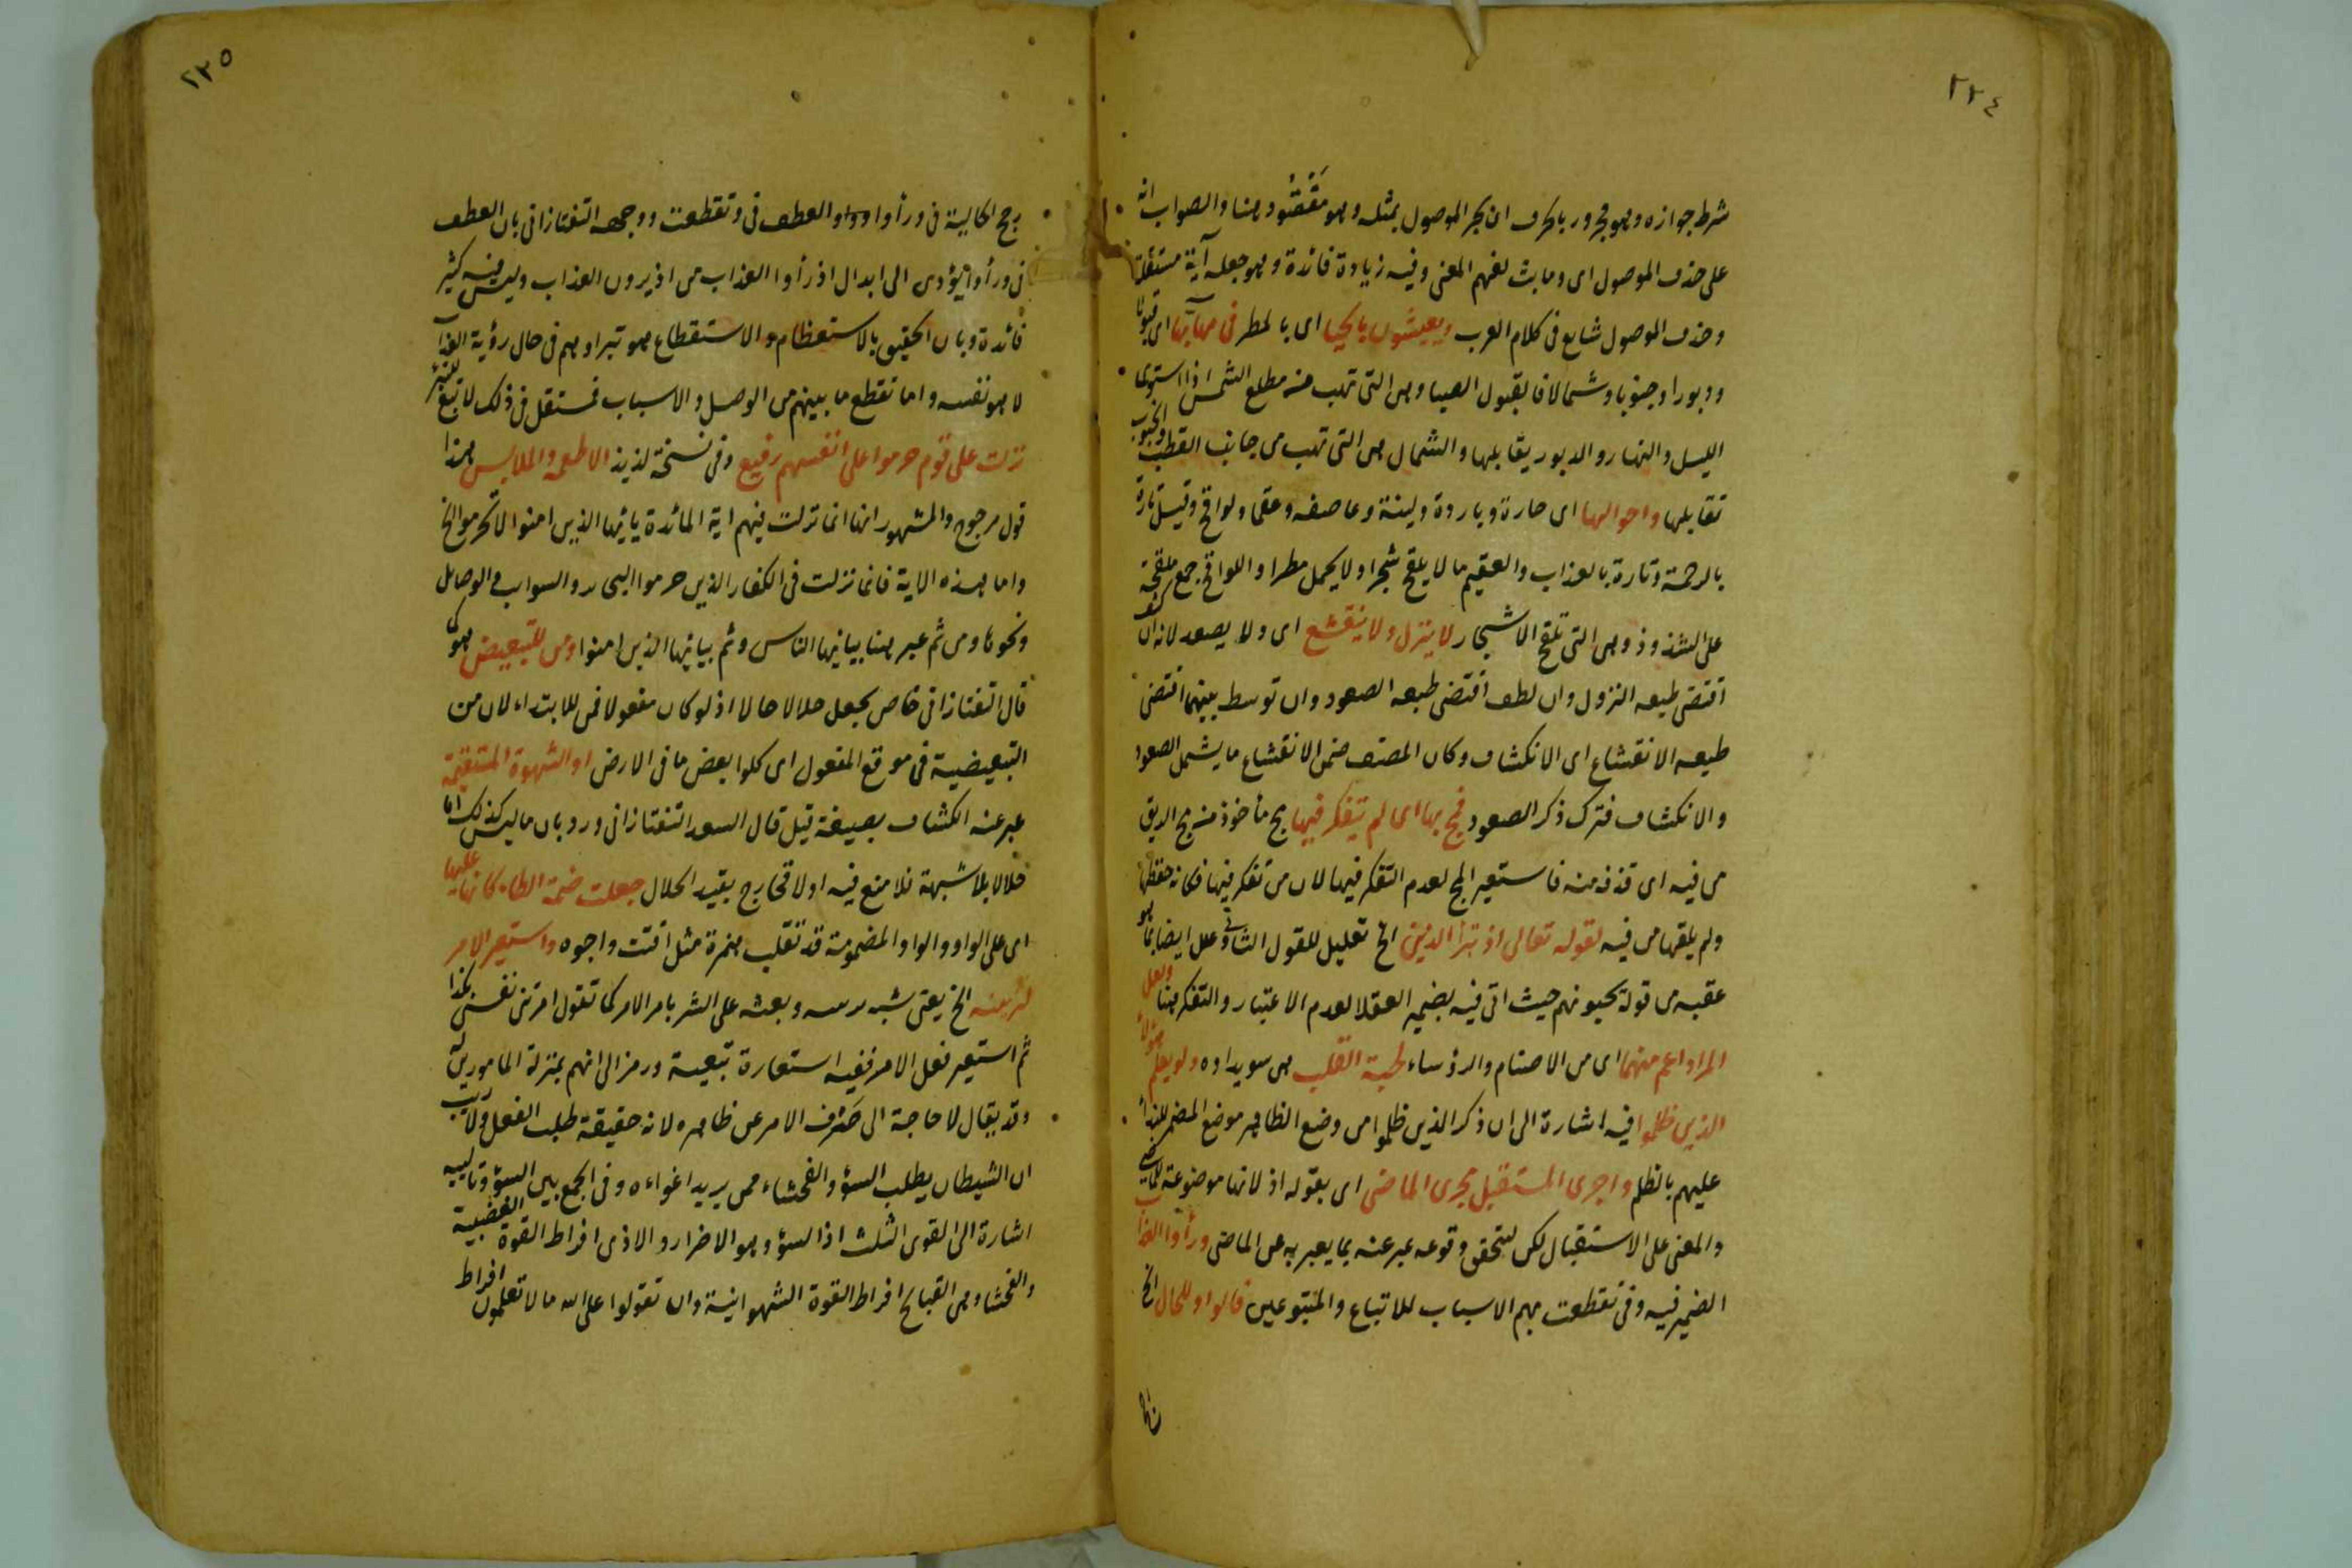 ٢٢٤
شرط جوازه وهو مجرور بالحرف ان يجر الموصول بمثله وهو مفقود هنا والصواب انه
على حذف الموصول اى وما بث لفهم المعنى وفيه زيادة فائدة وهو جعله آية مستقلة
وحذف الموصول شايع فى كلام العرب ويعيشون بالحيا اى بالمطر فى مهابها اى قبولا
ودبورا وجنوبا وشمالا فالقبول الصبا وهى التى تهب من مطلع الشمس اذا استوى
الليل والنهار والدبور يقابلها والشمال هى التى تهب من جانب القطب والجنوب
تقابلها واحوالها اى حارة وباردة ولينة وعاصفه وعقما ولواقح وقيل تارة
بالرحمة وتارة بالعذاب والعقيم ما لا يلقح شجرا ولا يحمل مطرا واللواقح جمع ملقحة
على الشذوذ وهى التى تلقح الاشجار لا ينزل ولا ينقشع اى ولا يصعد لانه ان
اقتضى طبعه النزول وان لطف اقتضى طبعه الصعود وان توسط بينهما اقتضى
طبعه الانقشاع اى الانكشاف وكان المصنف ضمن الانقشاع ما يشمل الصعود
والانكشاف فترك ذكر الصعود فمج بها اى لم يتفكر فيها مج مأخوذ من مج الريق
من فيه اى قذفه منه فاستعير المج لعدم التفكر فيها لان من تفكر فيها فكانه حفظها
ولم يلقها من فيه لقوله تعالى اذ تبرأ الذين الخ تعليل للقول الثانى وعلل ايضا بما هو
عقبه من قوله يحبونهم حيث اتى فيه بضمير العقلا لعدم الاعتبار والتفكر هنا ولعل
المراد اعم منهما اى من الاصنام والرؤساء لحبة القلب هى سويداوه ولو يعلم هؤلاء
الذين ظلموا فيه اشارة الى ان ذكر الذين ظلموا من وضع الظاهر موضع المضمر للنداء
عليهم بالظلم واجرى المستقبل مجرى الماضى اى بقوله اذ لانها موضوعة للماضى
والمعنى على الاستقبال لكن لتحقق وقوعه عبر عنه بما يعبر به عن الماضى ورأوا العذاب
الضمير فيه وفى تقطعت بهم الاسباب للاتباع والمتبوعين فالواو للحال الخ
٢٢٥
رجح الحالية فى ورأوا وواو العطف فى وتقطعت ووجهه التفتازانى بان العطف
فى ورأوا يؤدى الى ابدال اذ رأوا العذاب من اذ يرون العذاب وليس فيه كثير
فائدة وبان الحقيق بالاستعظام والاستقطاع هو تبراوهم فى حال رؤية العذاب
لا هو نفسه واما تقطع ما بينهم من الوصل والاسباب فمستقل فى ذلك لا تبع للتبرئ
نزلت على قوم حرموا على انفسهم رفيع وفى نسخة لذيذ الاطعمه والملابس هذا
قول مرجوح والمشهور انها انما نزلت فيهم اية المائدة يا ايها الذين امنوا لا تحرموا الخ
واما هذه الاية فانما نزلت فى الكفار الذين حرموا البحائر والسوايب والوصايل
ونحوها ومن ثم عبر هنا بيا ايها الناس وثم بيا ايها الذين امنوا ومن للتبعيض هو كما
قال التفتازانى خاص بجعل حلالا حالا اذ لو كان مفعولا فمن للابتداء لان من
التبعيضية فى موقع المفعول اى كلوا بعض ما فى الارض او الشهوة المستقيمة
عبر عنه الكشاف بصيغة قيل قال السعد التفتازانى ورد بان ما ليس كذلك اما
حلالا بلا شبهة فلا منع فيه او لا فخارج بقيد الحلال جعلت ضمة الطاء كانها عليها
اى على الواو والواو المضمومة قد تقلب همزة مثل اقتت واجوه واستعير الامر
لتزيينه الخ يعنى شبه وبعثه على الشر بامر الامر كما تقول امرتنى نفسى بكذا
ثم استعير فعل الامر ففيه استعارة تبعية ورمز الى انهم بمنزلة المامورين
وقد يقال لا حاجة الى صرف الامر عن ظاهره لانه حقيقة طلب الفعل ولا ريب
ان الشيطان يطلب السؤ والفحشاء ممن يريد اغواءه وفى الجمع بين السؤ وتالييه
اشارة الى القوى الثلث اذ السؤ وهو الاضرار والاذى افراط القوة الغضبية
والفحشا وهى القبايح افراط القوة الشهوانية وان تقولوا على الله ما لا تعلمون افراط